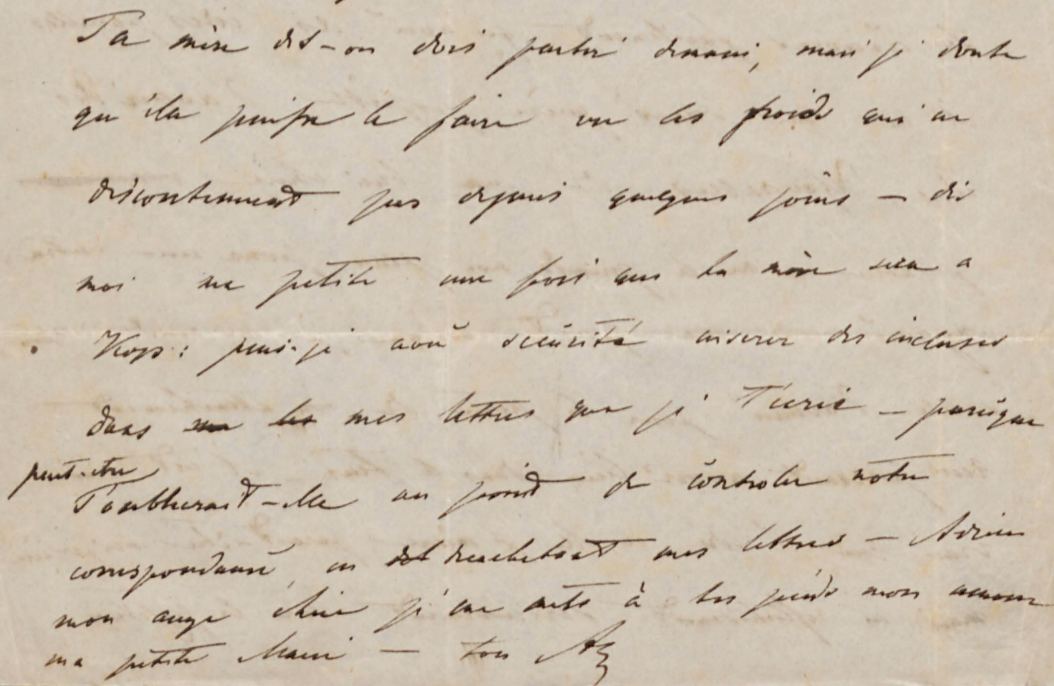 Ta mère dit-on dois partir demain, mais je doute
qu'elle puisse le faire vu les froids qui ne
discontinuent pas depuis quelques jours — dis
moi ma petite une fois que ta mère sera a
puis-je avec sécurité des incluses
dans mes lettres que je T'ecris —
peut-etre
T'oublierait-elle au point de contrôler notre
correspondance, en decachetant mes lettres — Adieu
mon ange cherie je me mets à tes pieds mon amour
ma petite Marie — ton